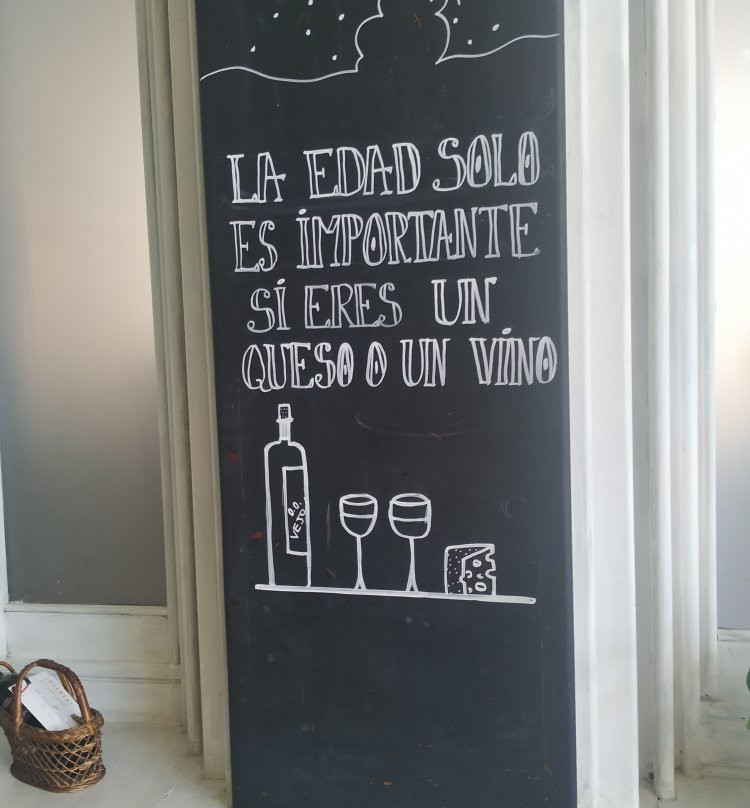 LA EDAD SOLO
ES IMPORTANTE
SI ERES UN
QUESO O UN VINO
D.O.
VEJO